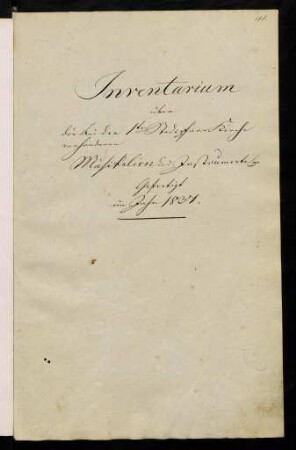 Inventarium
über
die bei der 1ten Stadtpfarr Kirche
vorhandenen
Musikalien und Instrumente
Gefertigt
im Jahr 1837.